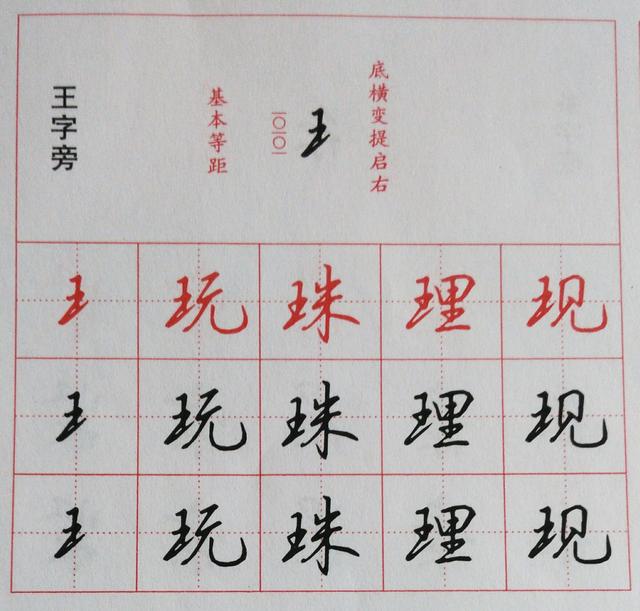 王字旁
基本等距
底横变提启右
王 玩 珠 理 现
王 玩 珠 理 现
王 玩 珠 理 现